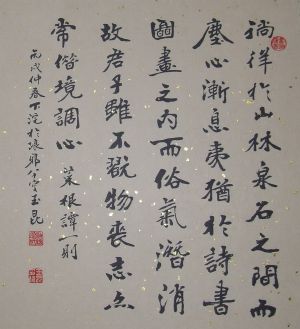 徜徉於山林泉石之間而
塵心漸息夷猶於詩書
圖畫之內而俗氣潛消
故君子雖不翫物喪志亦
常借境調心 菜根譚一則
丙戌仲春下浣於 玉昆